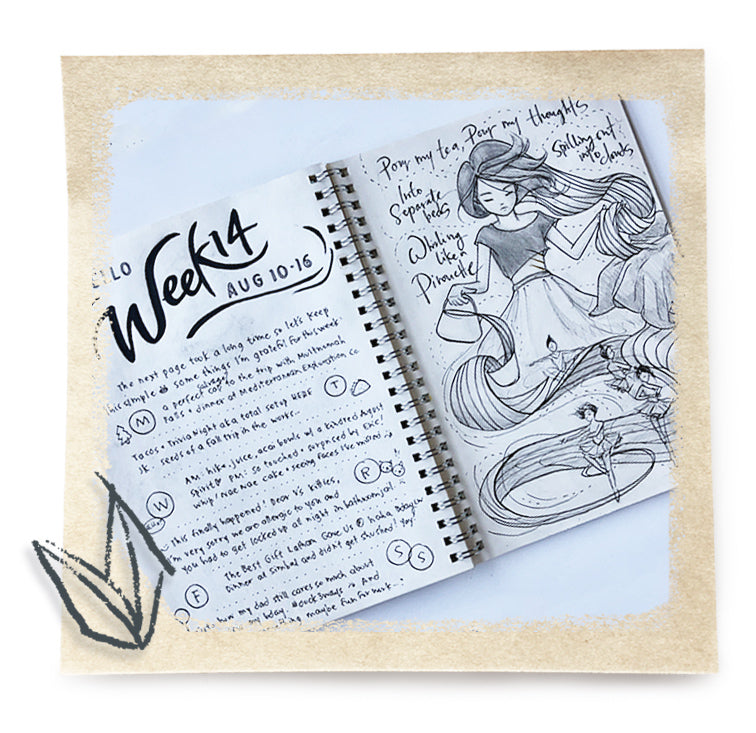 LO
Week 14
AUG 10-16
The next page took a long time so let's keep
this simple some things I'm grateful for this week
a perfect cap to the trip with Multnomah
salvaged
Falls + dinner at Mediterranean Exploration Co.
M
T
Tacos + Trivia Night aka total setup HEHE
JK. seeds of a fall trip in the works...
AM: hike, juice, acai bowls w/ a kindred August
spirit PM: so touched + surprised by Eric!
Whip/Nae Nae cake + seeing faces I've missed
W
R
this finally happened! Dear V's kitties,
I'm very sorry we are allergic to you and
you had to get locked up at night in bathroom jail
The Best Gift Lauren Gave Us haha
Dinner at Simbal and didn't get shushed! Yay!
F
S S
how my dad still cares so much about
my bday. And
maybe fun for mark
Pour my tea, Pour my thoughts
Into
Separate
beds
Spilling out
into clouds
Whirling
like a
Pirouette